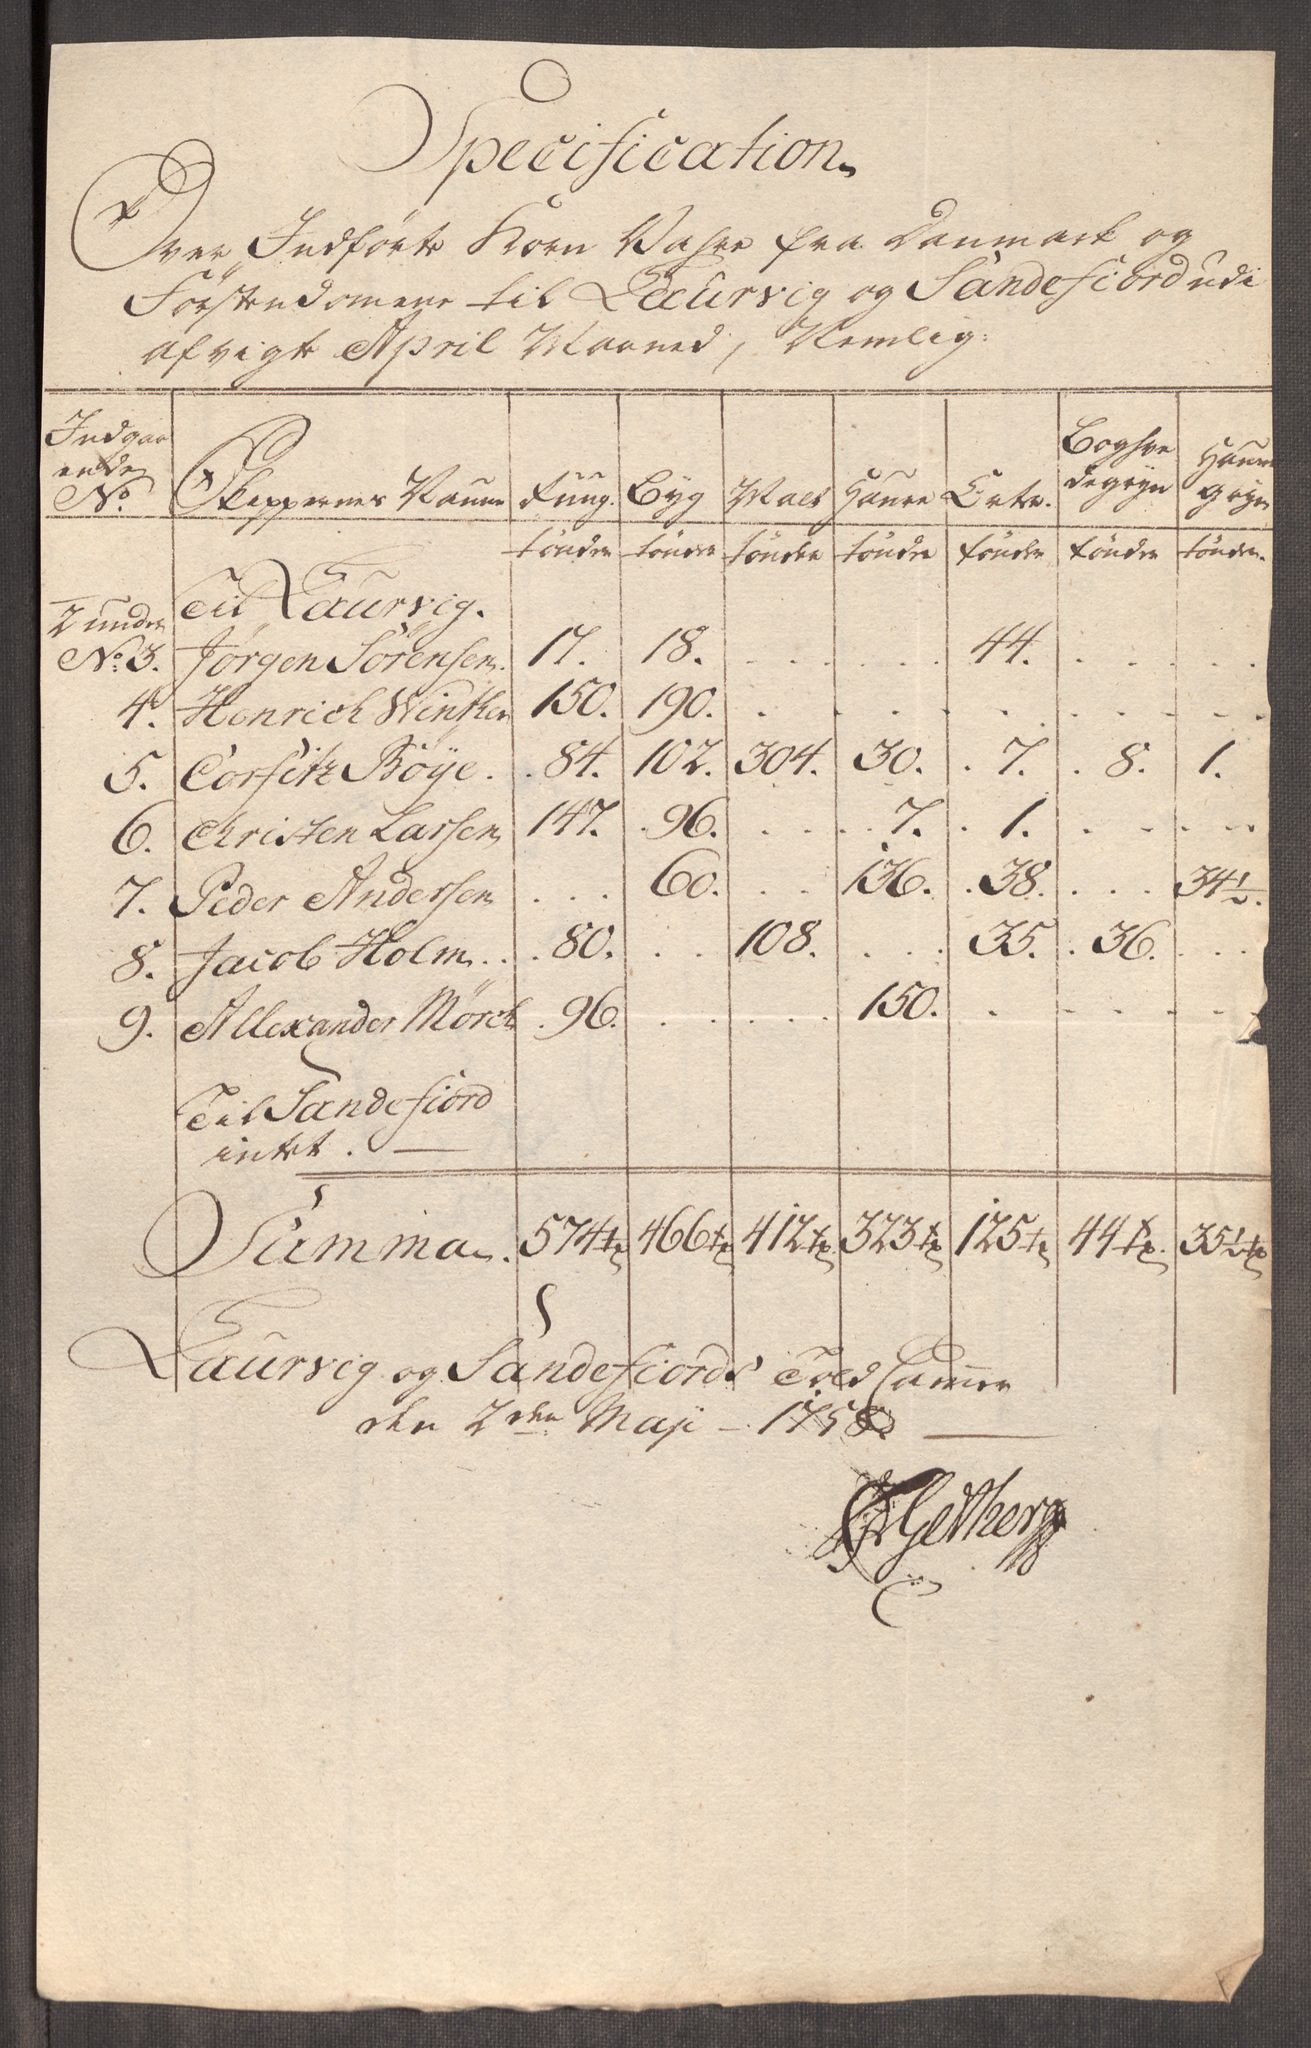 Specification
Over Indførte Korn Vahre fra Danmark og
Förstendomene til Laurvig og Sandefiord udi
afvigte April Maaned, Nemlig:
Indgaa
ende
No. Skeppernes Naune Ruug. Byg Malt Haure Erter. Boghve
degryn Haure
gryn
tönder tönder tönder tönder tönder tönder tönder
Til Laurvig.
2 under
No. 3. Jørgen Sörensen. 17. 18. 44.
4. Henrich Winther 150. 190.
5. Corfitz Böye. 84. 102. 304. 30. 7. 8. 1.
6. Christen Larsen 147. 96. 7. 1.
7. Peder Andersen 60. 136. 38. 34½.
8. Jacob Holm 80. 108. 35. 36.
9. Allexander Mörch 96. 150.
Til Sandefiord
intet.
Summa. 574 tr 466 tr 412 tr 323 tr 125 tr 44 tr. 35½ tr
Laurvig og Sandefiords Told Camer
den 2den Maji - 1758